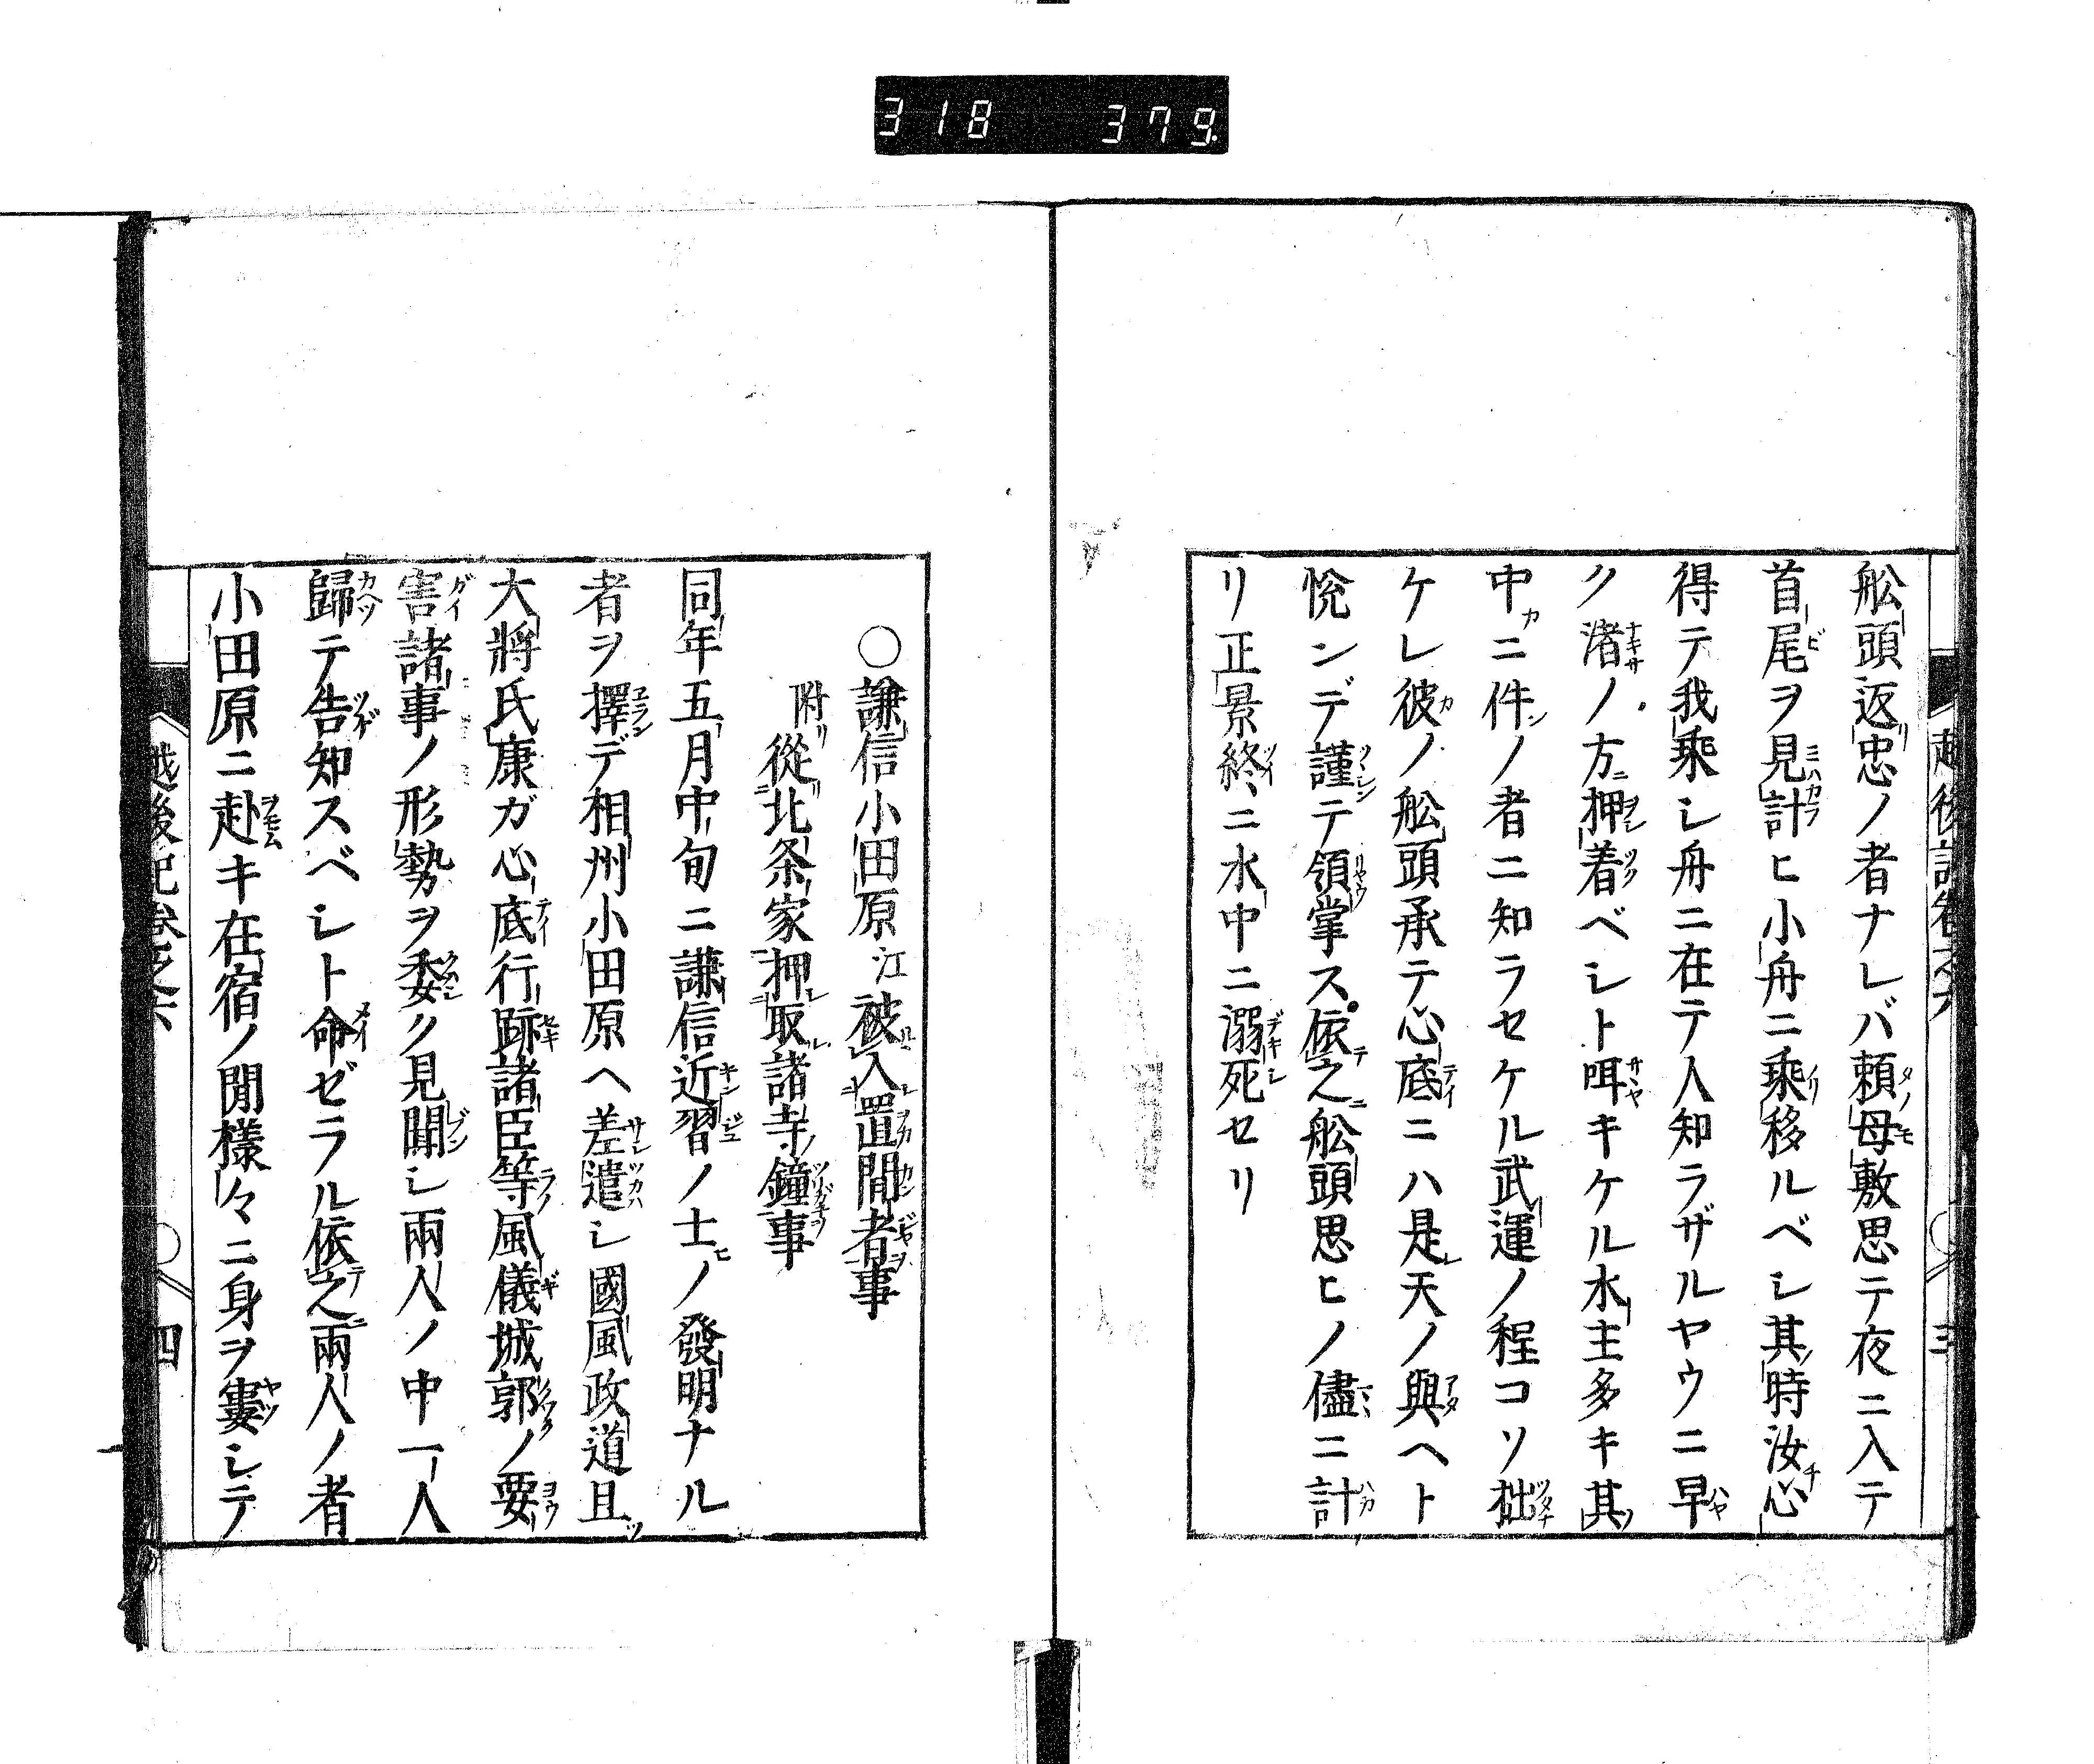 318 379
舩頭返忠ノ者ナレバ頼母敷思テ夜ニ入テ
首尾ヲ見計ヒ小舟ニ乘移ルベシ其時汝心
得テ我乘シ舟ニ在テ人知ラザルヤウニ早
ク渚ノ方押着ベシト咡キケル水主多キ其
中ニ件ノ者ニ知ラセケル武運ノ程コソ拙
ケレ彼ノ舩頭承テ心底ニハ是天ノ與ヘト
悅ンデ謹テ領掌ス依之舩頭思ヒノ儘ニ計
リ正景終ニ水中ニ溺死セリ
越後記卷之六
三
○謙信小田原江被入置間者事
附リ從北条家押取諸寺鐘事
同年五月中旬ニ謙信近習ノ士ノ發明ナル
者ヲ擇デ相州小田原ヘ差遣シ國風政道且
大將氏康ガ心底行跡諸臣等風儀城郭ノ要
害諸事ノ形勢ヲ委ク見聞シ兩人ノ中一人
歸テ告知スベシト命ゼラル依之兩人ノ者
小田原ニ赴キ在宿ノ間樣々ニ身ヲ窶シテ
越後記卷之六
四